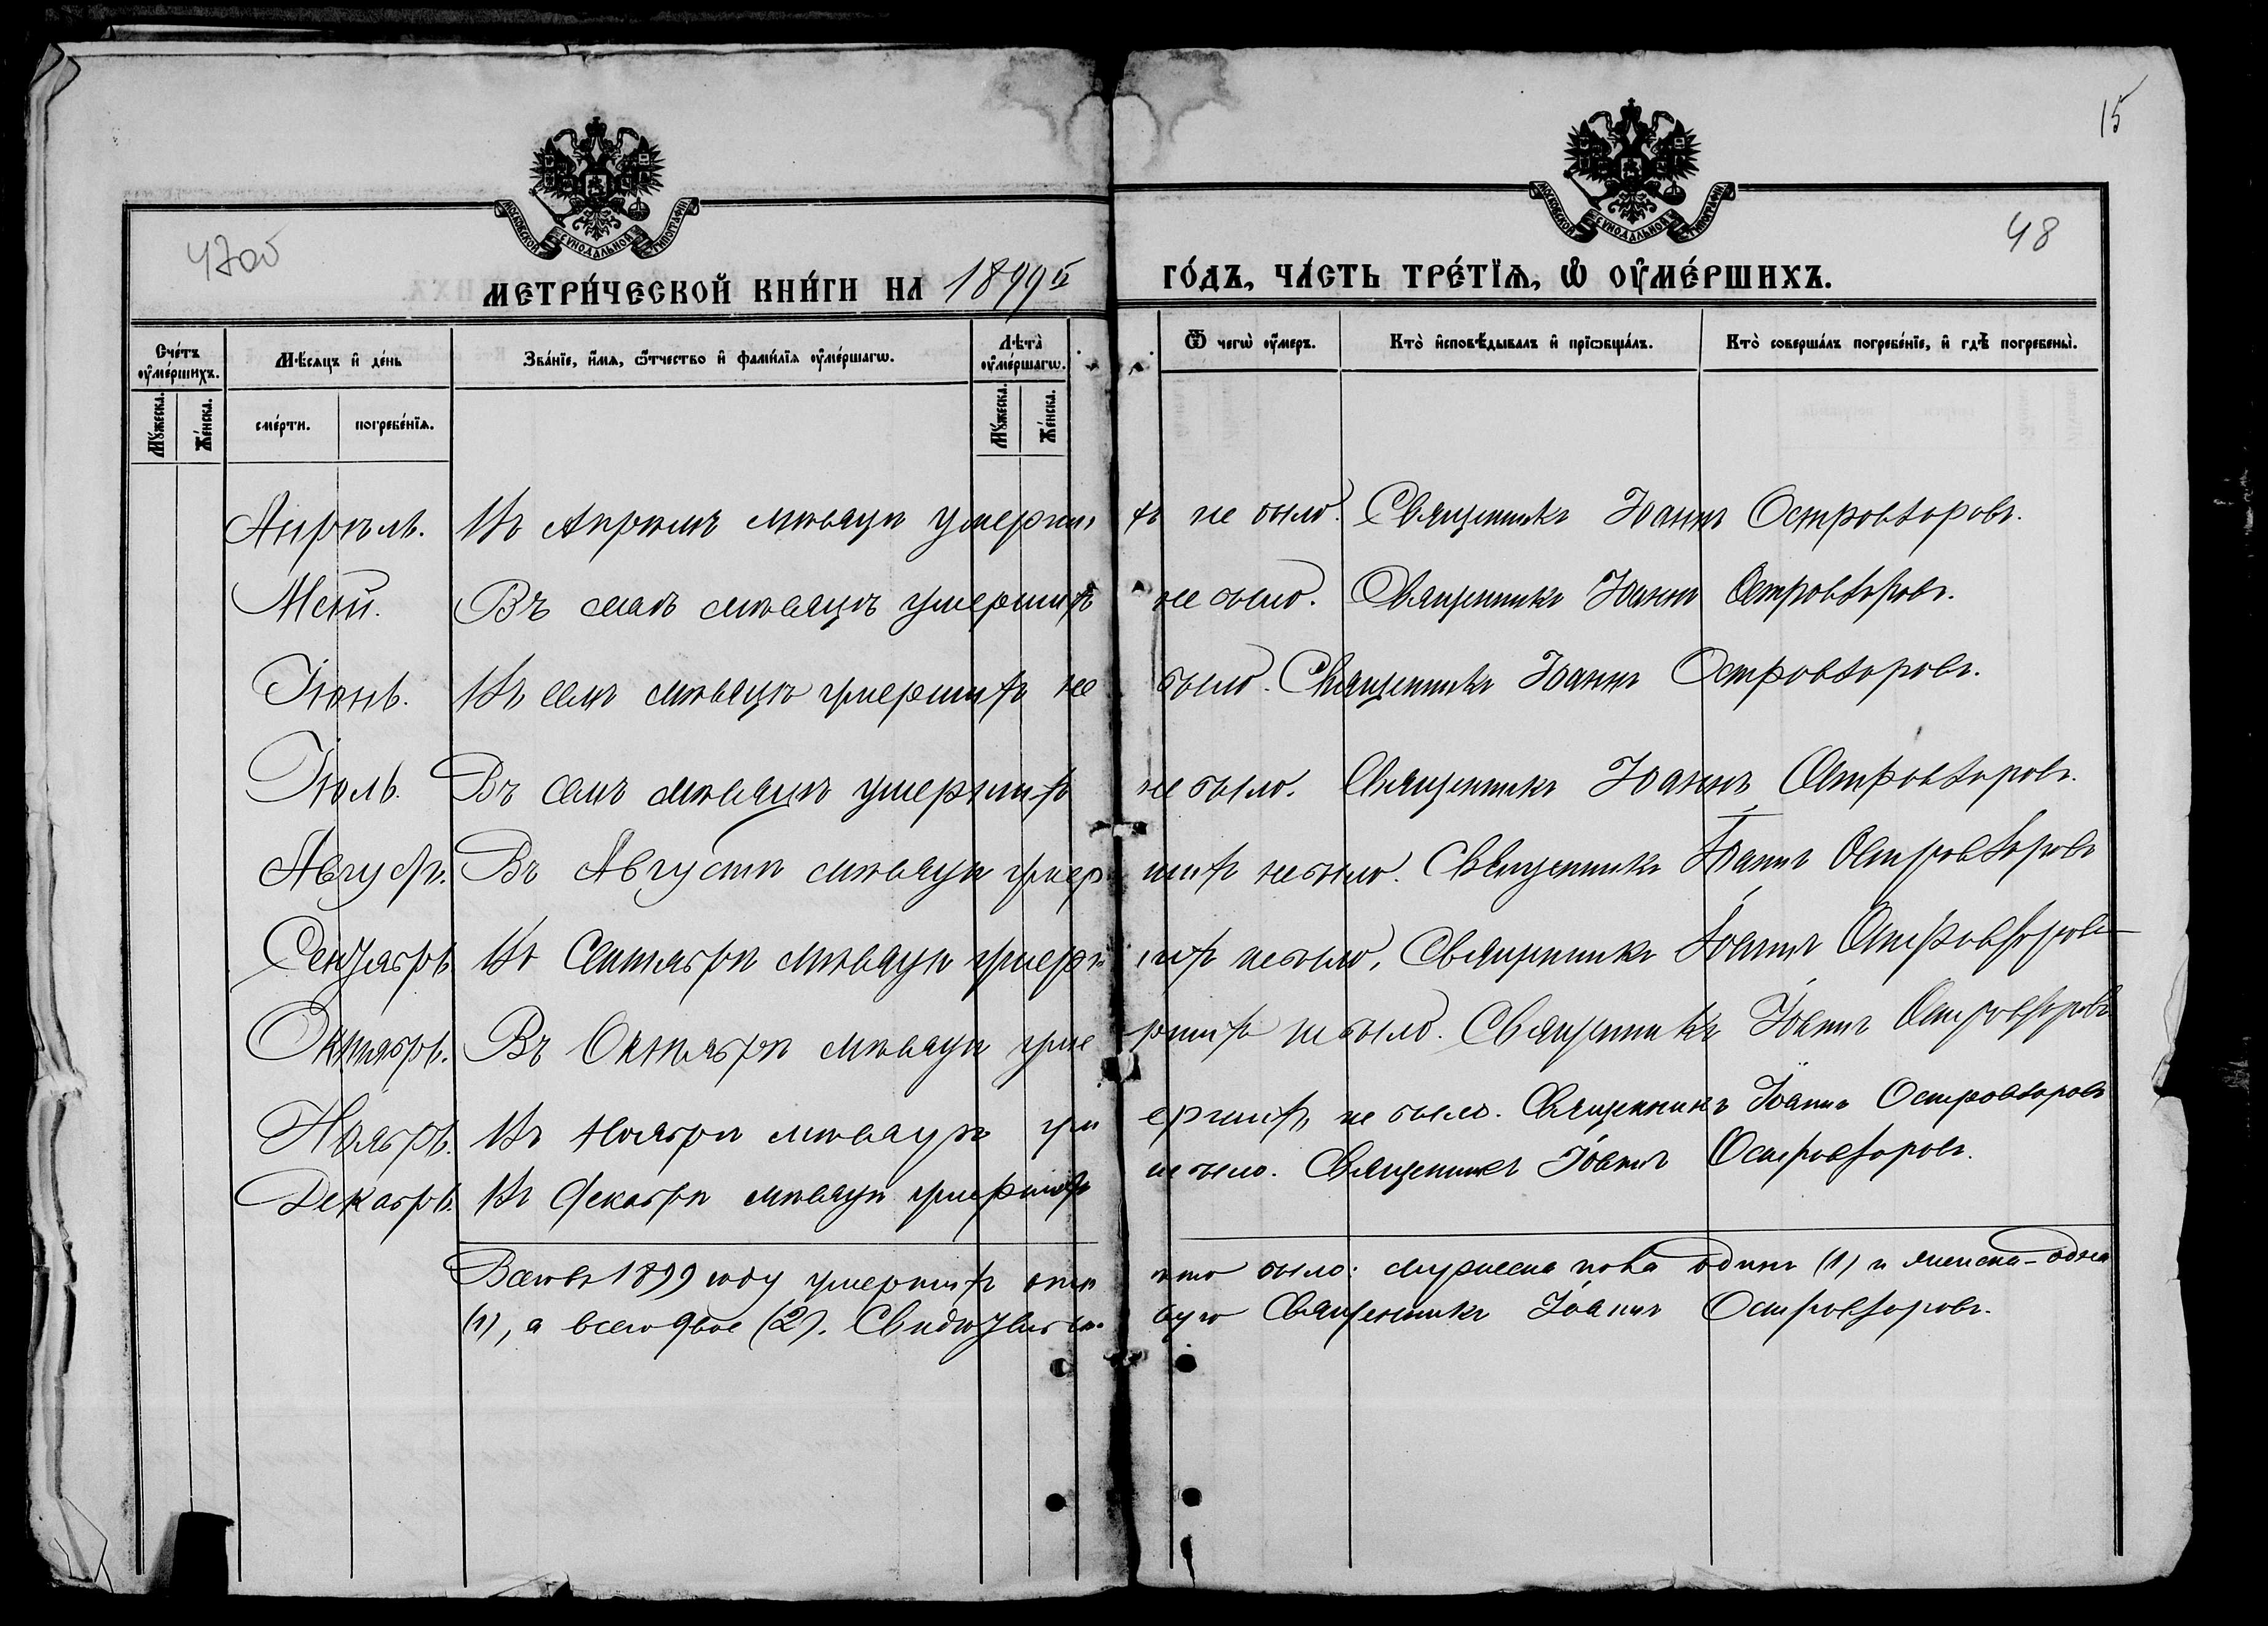 15
47об
48
МОСКОВСКОЙ СУНОДАЛЬНОЙ ТИПОГРАФІИ
МОСКОВСКОЙ СУНОДАЛЬНОЙ ТИПОГРАФІИ
МЕТРИ́ЧЕСКОЙ КНИ́ГИ НА 1899й ГО́ДЪ, ЧА́СТЬ ТРЕ́ТЇѦ, Ѡ҆ ОУ҆МЕ́РШИХЪ.
Сче́тъ оу҆ме́ршихъ. Мѣ́сяцъ и҆ де́нь Зва́нїе, и҆́мя, ѻ҆́тчество и҆ фами́лїя оу҆ме́ршагѡ. Лѣ́та оу҆ме́ршагѡ. Ѿ чегѡ̀ оу҆́меръ. Кто̀ и҆сповѣ́дывалъ и҆ прїѡбща́лъ. Кто̀ соверша́лъ погребе́нїе, и҆ гдѣ̀ погребены̀.
Му́жеска. Же́нска. сме́рти. погребе́нїя. Му́жеска. Же́нска.
Апрѣль. Въ Апрѣлѣ мѣсяцѣ умершихъ не было. Священникъ Іоаннъ Островзоровъ.
Май. Въ маѣ мѣсяцѣ умершихъ не было. Священникъ Іоаннъ Островзоровъ.
Іюнь. Въ семъ мѣсяцѣ умершихъ не было. Священникъ Іоаннъ Островзоровъ.
Іюль. Въ семъ мѣсяцѣ умершихъ не было. Священникъ Іоаннъ Островзоровъ.
Августъ. Въ Августѣ мѣсяцѣ умершихъ не было. Священникъ Іоаннъ Островзоровъ
Сентябрь. Въ Сентябрѣ мѣсяцѣ умершихъ не было. Священникъ Іоаннъ Островзоровъ
Октябрь. Въ Октябрѣ мѣсяцѣ умершихъ не было. Священникъ Іоаннъ Островзоровъ
Ноябрь. Въ Ноябрѣ мѣсяцѣ умершихъ не было. Священникъ Іоаннъ Островзоровъ
Декабрь. Въ Декабрѣ мѣсяцѣ умершихъ не было. Священникъ Іоаннъ Островзоровъ.
Всего въ 1899 году умершихъ было: мужеска пола одинъ (1) и женска - одна
(1), а всего двое (2). Свидѣтельствую Священникъ Іоаннъ Островзоровъ.